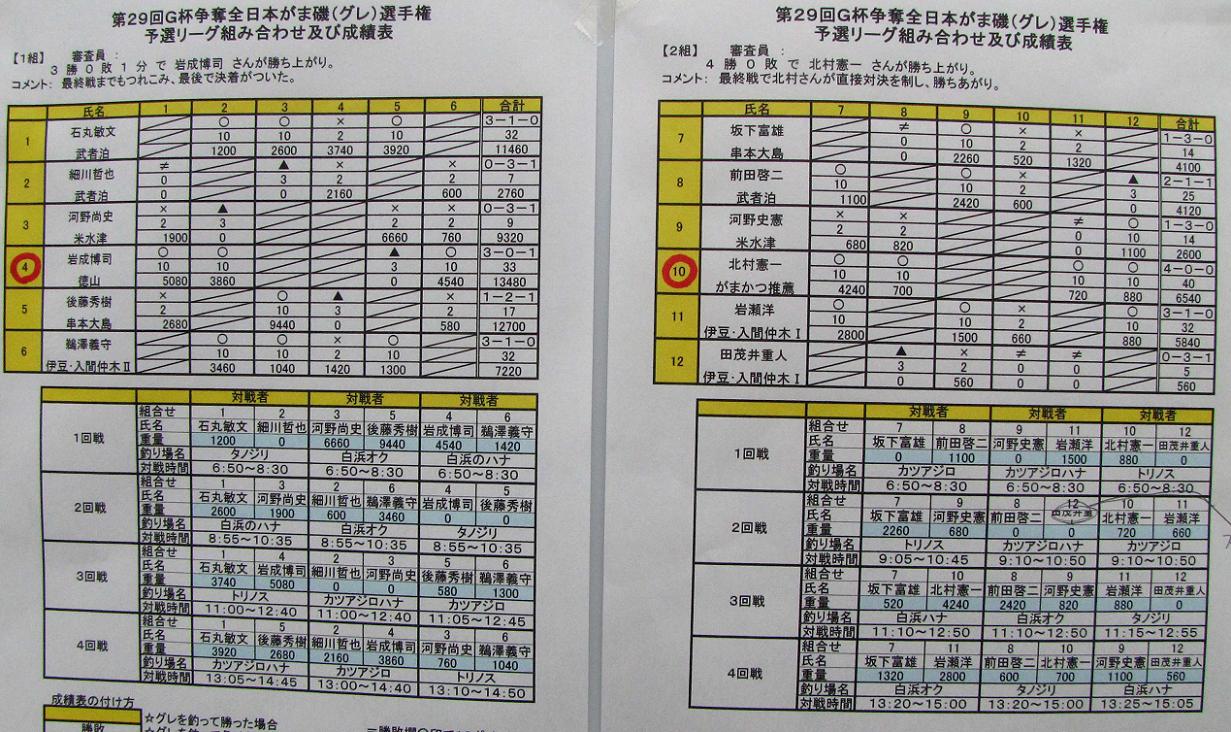 第29回G杯争奪全日本がま磯(グレ)選手権
予選リーグ組み合わせ及び成績表
【1組】 審査員 :
3 勝 0 敗 1 分 で 岩成博司 さんが勝ち上がり。
コメント: 最終戦までもつれこみ、最後で決着がついた。
氏名 1 2 3 4 5 6 合計
1 石丸敏文 ○ ○ × ○ 3-1-0
10 10 2 10 32
武者泊 1200 2600 3740 3920 11460
2 細川哲也 ≠ ▲ × × 0-3-1
0 3 2 2 7
武者泊 0 0 2160 600 2760
3 河野尚史 × ▲ × × 0-3-1
2 3 2 2 9
米水津 1900 0 6660 760 9320
4 岩成博司 ○ ○ ▲ ○ 3-0-1
10 10 3 10 33
徳山 5080 3860 0 4540 13480
5 後藤秀樹 × ○ ▲ × 1-2-1
2 10 3 2 17
串本大島 2680 9440 0 580 12700
6 鵜澤義守 ○ ○ × ○ 3-1-0
10 10 2 10 32
伊豆・入間仲木Ⅱ 3460 1040 1420 1300 7220
対戦者 対戦者 対戦者
1回戦 組合せ 1 2 3 5 4 6
氏名 石丸敏文 細川哲也 河野尚史 後藤秀樹 岩成博司 鵜澤義守
重量 1200 0 6660 9440 4540 1420
釣り場名 タノジリ 白浜オク 白浜のハナ
対戦時間 6:50~8:30 6:50~8:30 6:50~8:30
2回戦 組合せ 1 3 2 6 4 5
氏名 石丸敏文 河野尚史 細川哲也 鵜澤義守 岩成博司 後藤秀樹
重量 2600 1900 600 3460 0 0
釣り場名 白浜のハナ 白浜オク タノジリ
対戦時間 8:55~10:35 8:55~10:35 8:55~10:35
3回戦 組合せ 1 4 2 3 5 6
氏名 石丸敏文 岩成博司 細川哲也 河野尚史 後藤秀樹 鵜澤義守
重量 3740 5080 0 0 580 1300
釣り場名 トリノス カツアジロハナ カツアジロ
対戦時間 11:00~12:40 11:00~12:40 11:05~12:45
4回戦 組合せ 1 5 2 4 3 6
氏名 石丸敏文 後藤秀樹 細川哲也 岩成博司 河野尚史 鵜澤義守
重量 3920 2680 2160 3860 760 1040
釣り場名 カツアジロハナ カツアジロ トリノス
対戦時間 13:05~14:45 13:00~14:40 13:10~14:50
成績表の付け方
勝敗 ☆グレを釣って勝った場合
第29回G杯争奪全日本がま磯(グレ)選手権
予選リーグ組み合わせ及び成績表
【2組】 審査員 :
4 勝 0 敗 で 北村憲一 さんが勝ち上がり。
コメント: 最終戦で北村さんが直接対決を制し、勝ちあがり。
氏名 7 8 9 10 11 12 合計
7 坂下富雄 ≠ ○ × × 1-3-0
0 10 2 2 14
串本大島 0 2260 520 1320 4100
8 前田啓二 ○ ○ × ▲ 2-1-1
10 10 2 3 25
武者泊 1100 2420 600 0 4120
9 河野史憲 × × ≠ ○ 1-3-0
2 2 0 10 14
米水津 680 820 0 1100 2600
10 北村憲一 ○ ○ ○ ○ 4-0-0
10 10 10 10 40
がまかつ推薦 4240 700 720 880 6540
11 岩瀬洋 ○ ○ × ○ 3-1-0
10 10 2 10 32
伊豆・入間仲木Ⅰ 2800 1500 660 880 5840
12 田茂井重人 ▲ × ≠ ≠ 0-3-1
3 2 0 0 5
伊豆・入間仲木Ⅰ 0 560 0 0 560
対戦者 対戦者 対戦者
1回戦 組合せ 7 8 9 11 10 12
氏名 坂下富雄 前田啓二 河野史憲 岩瀬洋 北村憲一 田茂井重人
重量 0 1100 0 1500 880 0
釣り場名 カツアジロ カツアジロハナ トリノス
対戦時間 6:50~8:30 6:50~8:30 6:50~8:30
2回戦 組合せ 7 9 8 12 10 11
氏名 坂下富雄 河野史憲 前田啓二 田茂井重 北村憲一 岩瀬洋
重量 2260 680 0 0 720 660
釣り場名 トリノス カツアジロハナ カツアジロ
対戦時間 9:05~10:45 9:10~10:50 9:10~10:50
3回戦 組合せ 7 10 8 9 11 12
氏名 坂下富雄 北村憲一 前田啓二 河野史憲 岩瀬洋 田茂井重人
重量 520 4240 2420 820 880 0
釣り場名 白浜ハナ 白浜オク タノジリ
対戦時間 11:10~12:50 11:10~12:50 11:15~12:55
4回戦 組合せ 7 11 8 10 9 12
氏名 坂下富雄 岩瀬洋 前田啓二 北村憲一 河野史憲 田茂井重人
重量 1320 2800 600 700 1100 560
釣り場名 白浜オク タノジリ 白浜ハナ
対戦時間 13:20~15:00 13:20~15:00 13:25~15:05